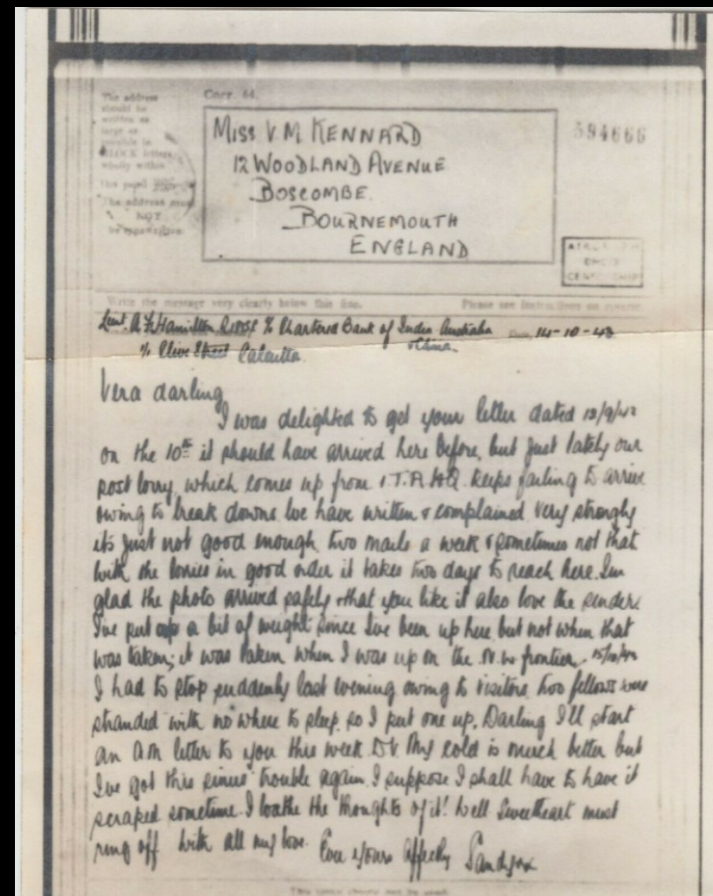 The address
should be
written as
large as
possible in
BLOCK letters
wholly within
this panel
The address must
NOT
be typewritten.
Corr. 44.
MISS V M KENNARD
12 WOODLAND AVENUE
BOSCOMBE
BOURNEMOUTH
ENGLAND
594666
Write the message very clearly below this line.
Please see instructions on reverse
Lieut. A F Hamilton c/o Chartered Bank of India Australia
+ China
14-10-43
Clive Street Calcutta
Vera darling
I was delighted to get your letter dated
on the 10th it should have arrived here before, but just lately our
post lorry, which comes up from HQ. keeps failing to arrive
owing to break downs we have written & complained very strongly
it's just not good enough, two mails a week & sometimes not that
with the lorries in good order it takes two days to reach here. I'm
glad the photo arrived safely & that you like it also love the sender.
I've put up a bit of weight since I've been up here but not when that
was taken; it was taken when I was up on the N.W. frontier.
I had to stop suddenly last evening owing to visitors, two fellows were
stranded with no where to sleep so I put one up. Darling I'll start
an AM letter to you this week D.V. My cold is much better but
I've got this sinus trouble again. I suppose I shall have to have it
scraped sometime. I loathe the thoughts of it! Well Sweetheart must
ring off with all my love. Ever yours affectly